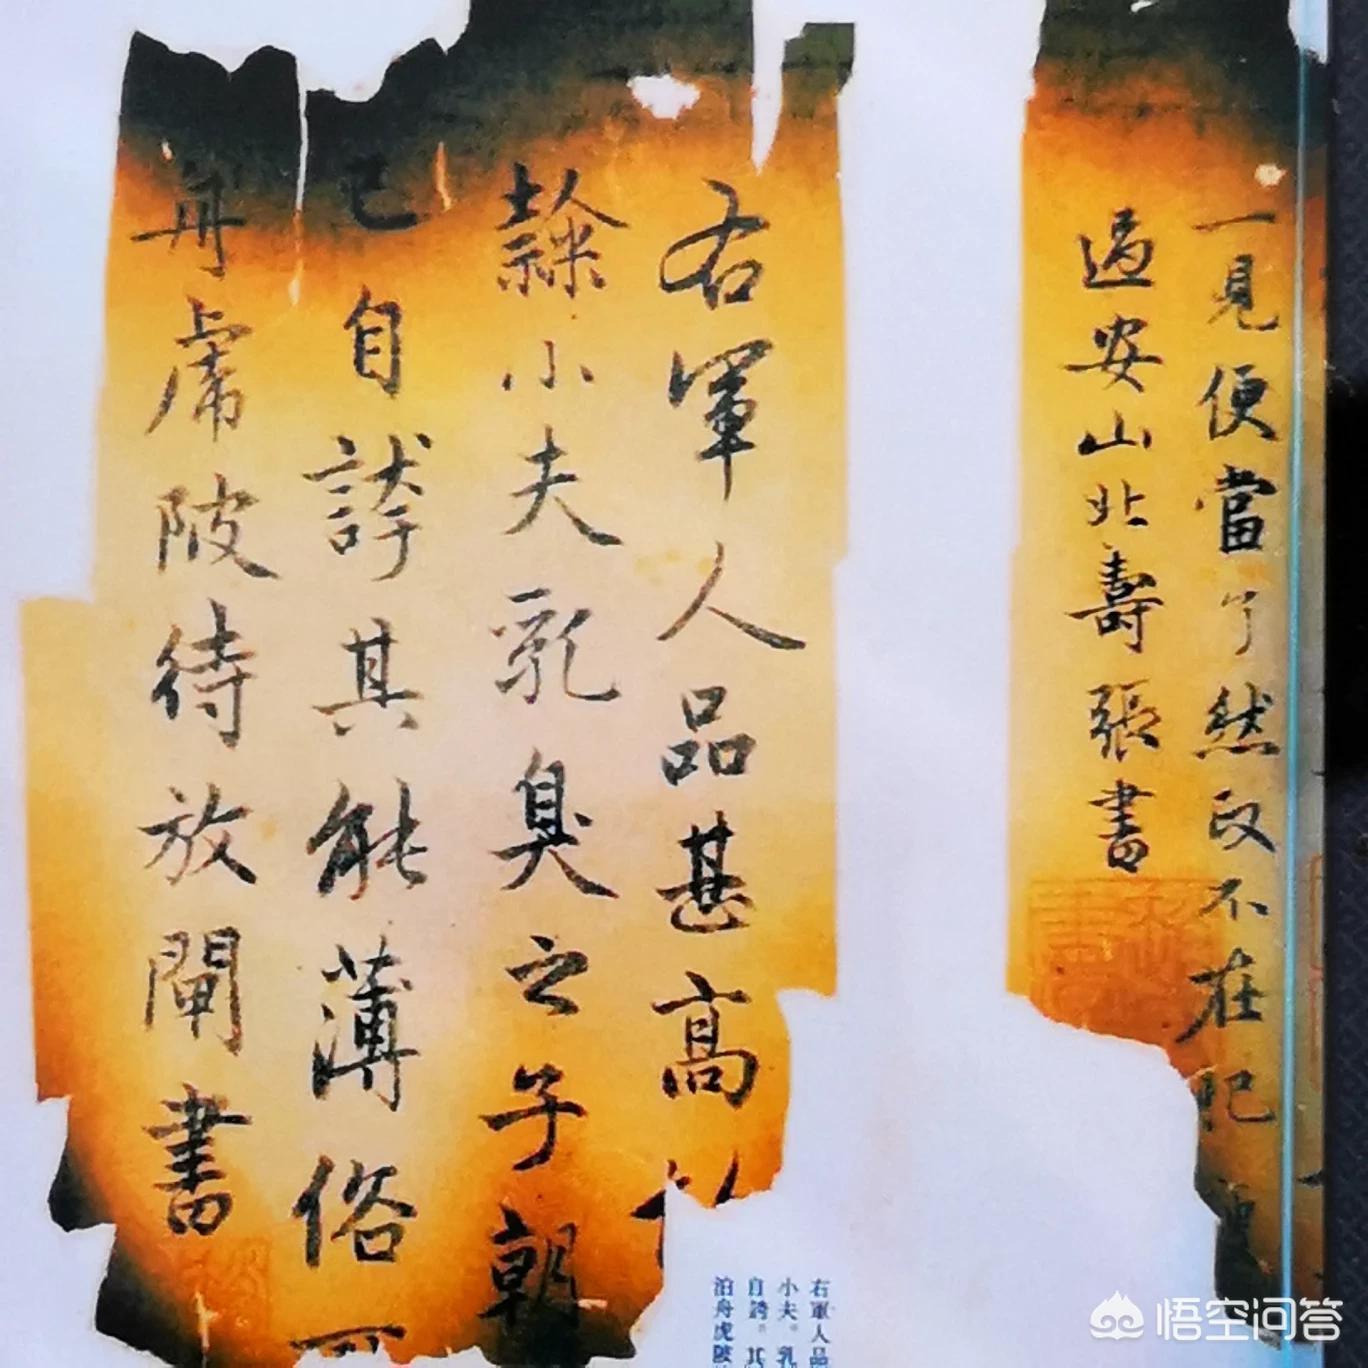 一見便當了然又不在肥
過安山北壽張書
右軍人品甚高
隸小夫乳臭之子朝
已自誇其能薄俗可
舟虎陂待放閘書
右軍人品
小夫。乳
自誇。其
泊舟虎陂
悟空问答